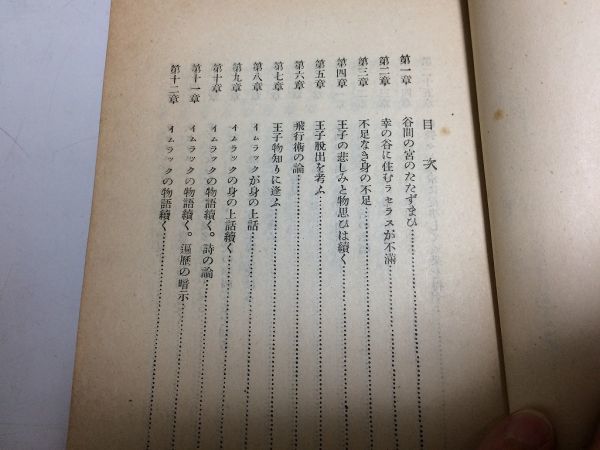 目次
第一章 谷間の宮のたたずまひ
第二章 幸の谷に住むラセラスが不滿
第三章 不足なき身の不足
第四章 王子の悲しみと物思ひは續く
第五章 王子脱出を考ふ
第六章 飛行術の論
第七章 王子物知りに逢ふ
第八章 イムラックが身の上話
第九章 イムラックの身の上話續く
第十章 イムラックの物語續く。詩の論
第十一章 イムラックの物語續く。遍歷の暗示
第十二章 イムラックの物語續く